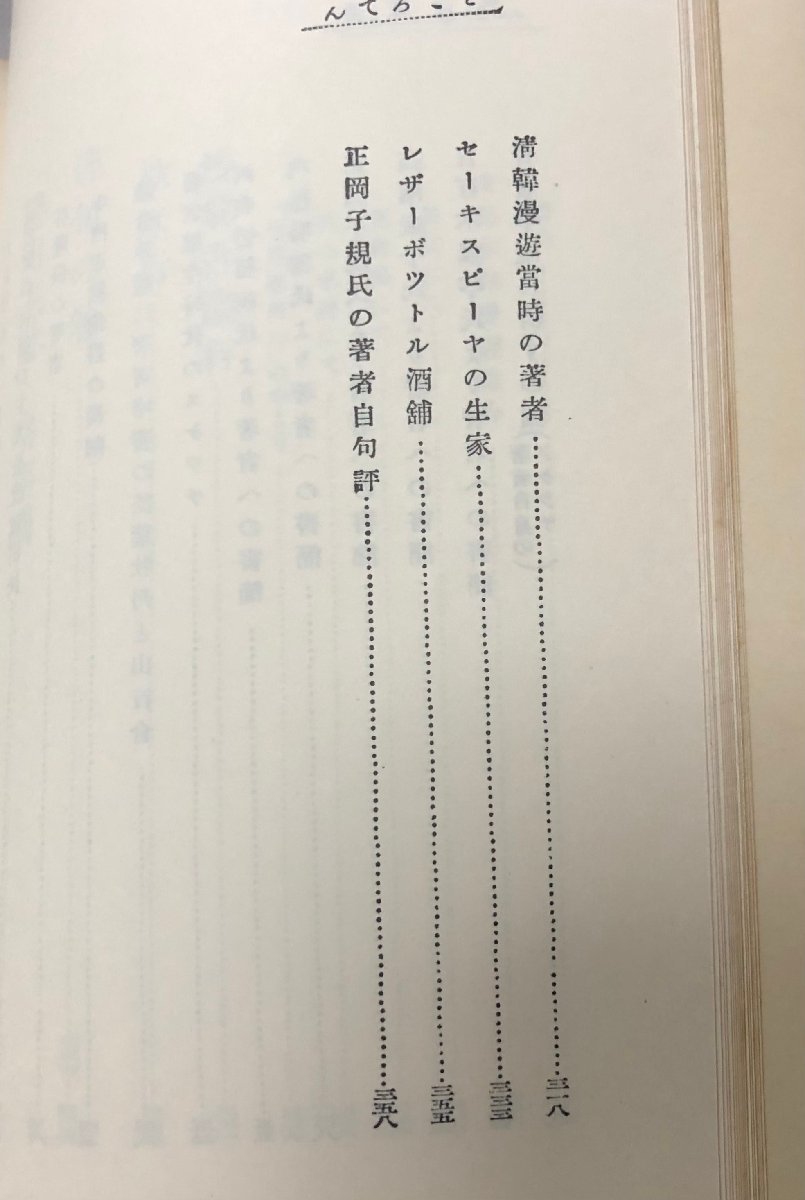 ところてん
清韓漫遊當時の著者……三一八
セーキスピーヤの生家……三三三
レザーボツトル酒舖……三五五
正岡子規氏の著者自句評……三五八